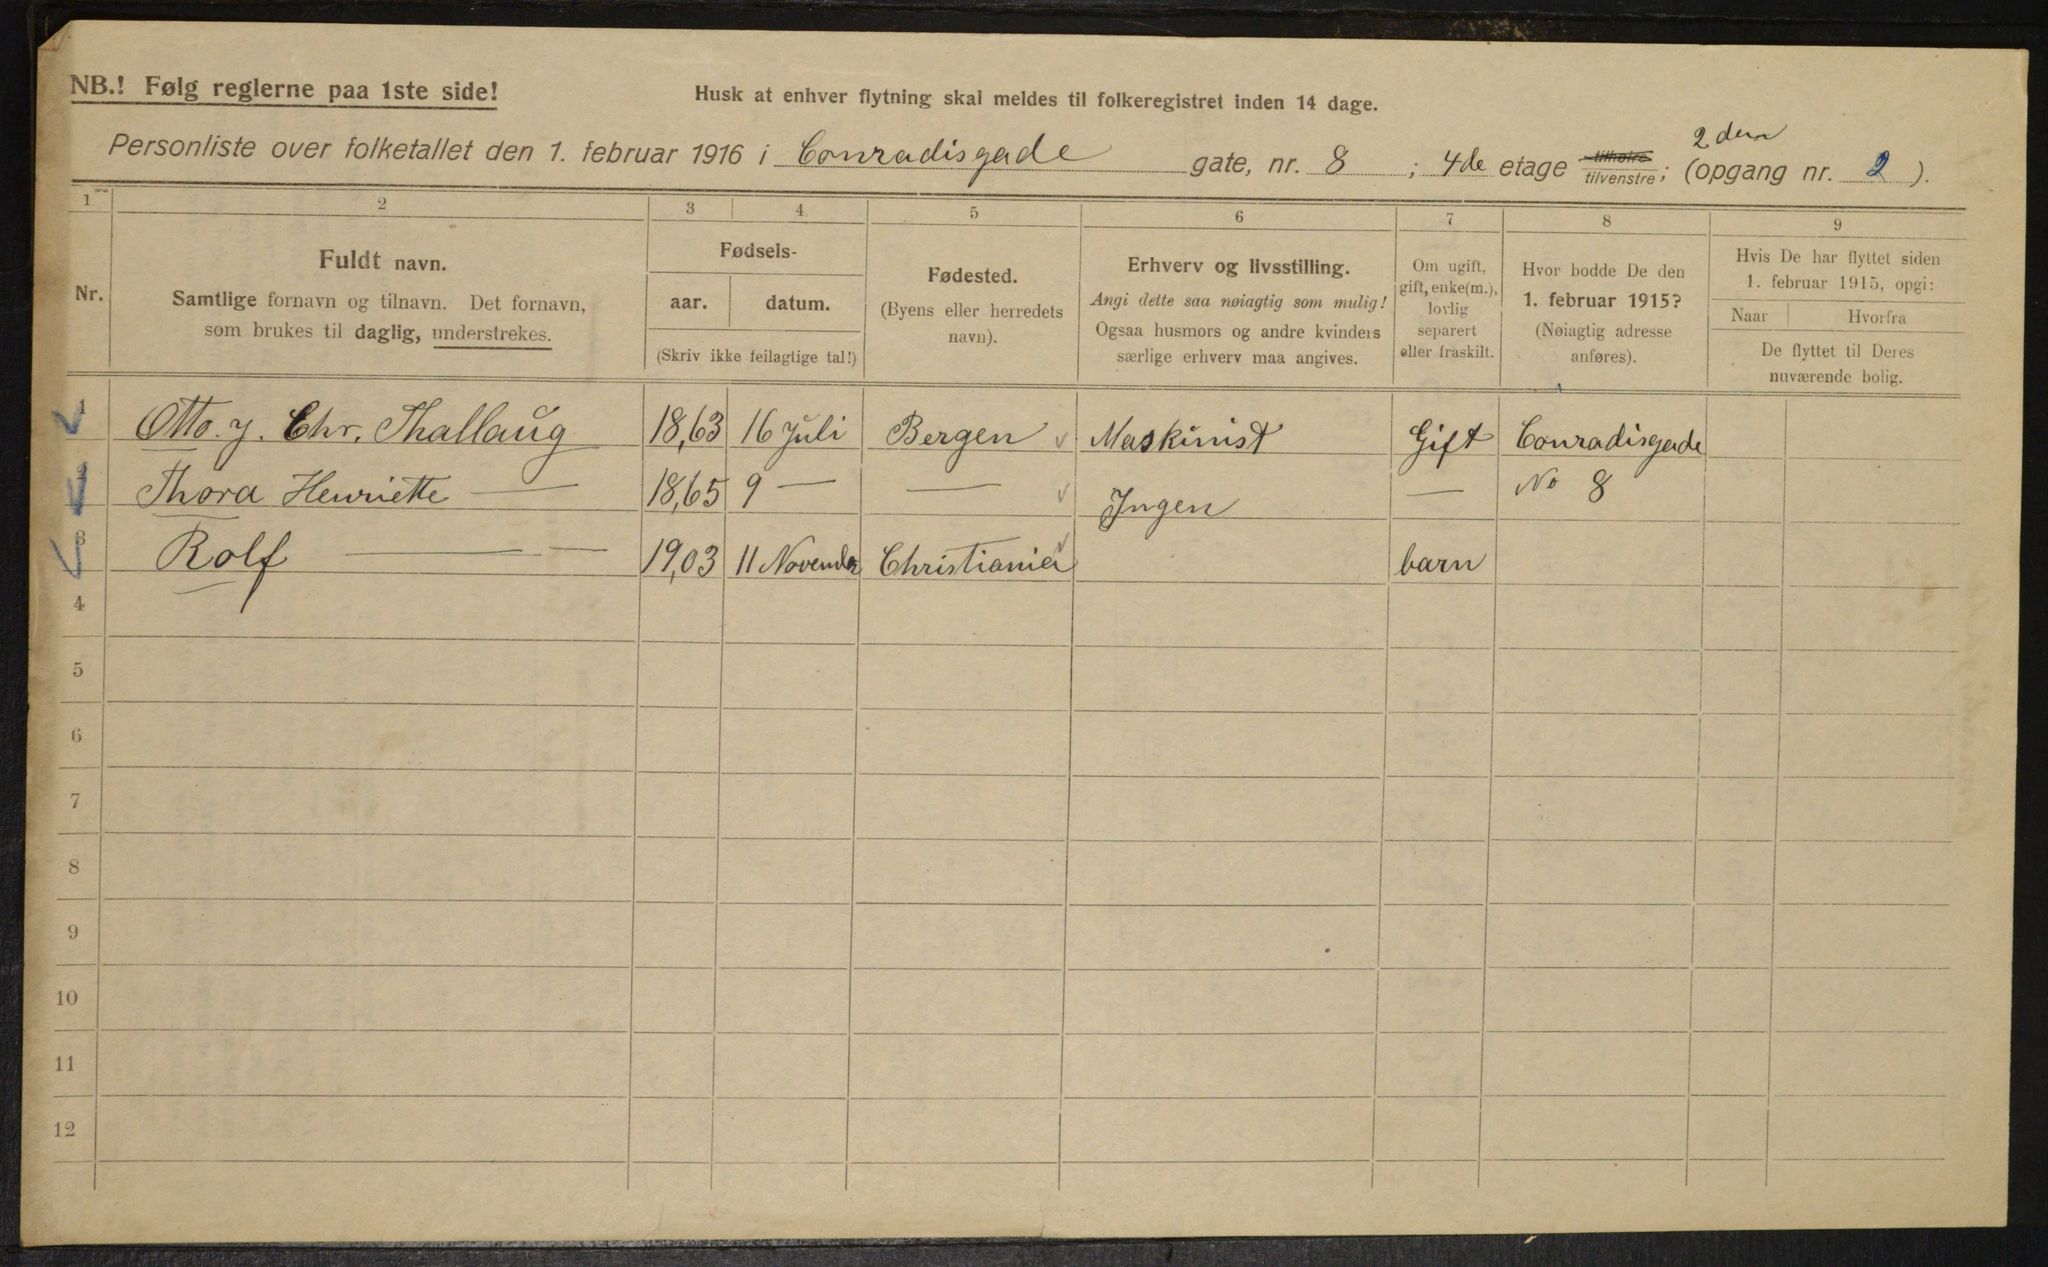 NB.! Følg reglerne paa 1ste side!
Husk at enhver flytning skal meldes til folkeregistret inden 14 dage.
2den
Personliste over folketallet den 1. februar 1916 i Conradisgade gate, nr. 8 ; 4de etage tilhøire tilvenstre; (opgang nr. 2 ).
1 2 3 4 5 6 7 8 9
Nr.
Fuldt navn.
Samtlige fornavn og tilnavn. Det fornavn,
som brukes til daglig, understrekes.
Fødsels-
aar. datum.
(Skriv ikke feilagtige tal!)
Fødested.
(Byens eller herredets
navn).
Erhverv og livsstilling.
Angi dette saa nøiagtig som mulig!
Ogsaa husmors og andre kvinders
særlige erhverv maa angives.
Om ugift,
gift, enke(m.),
lovlig
separert
eller fraskilt.
Hvor bodde De den
1. februar 1915?
(Nøiagtig adresse
anføres).
Hvis De har flyttet siden
1. februar 1915, opgi:
Naar Hvorfra
De flyttet til Deres
nuværende bolig.
1 Otto. J. Chr. Thallaug 18,63 16 Juli Bergen Maskinist Gift Conradisgade
2 Thora Henriette — 18,65 9 — — Ingen — No 8
3 Rolf — — 19,03 11 November Christiania barn
4
5
6
7
8
9
10
11
12